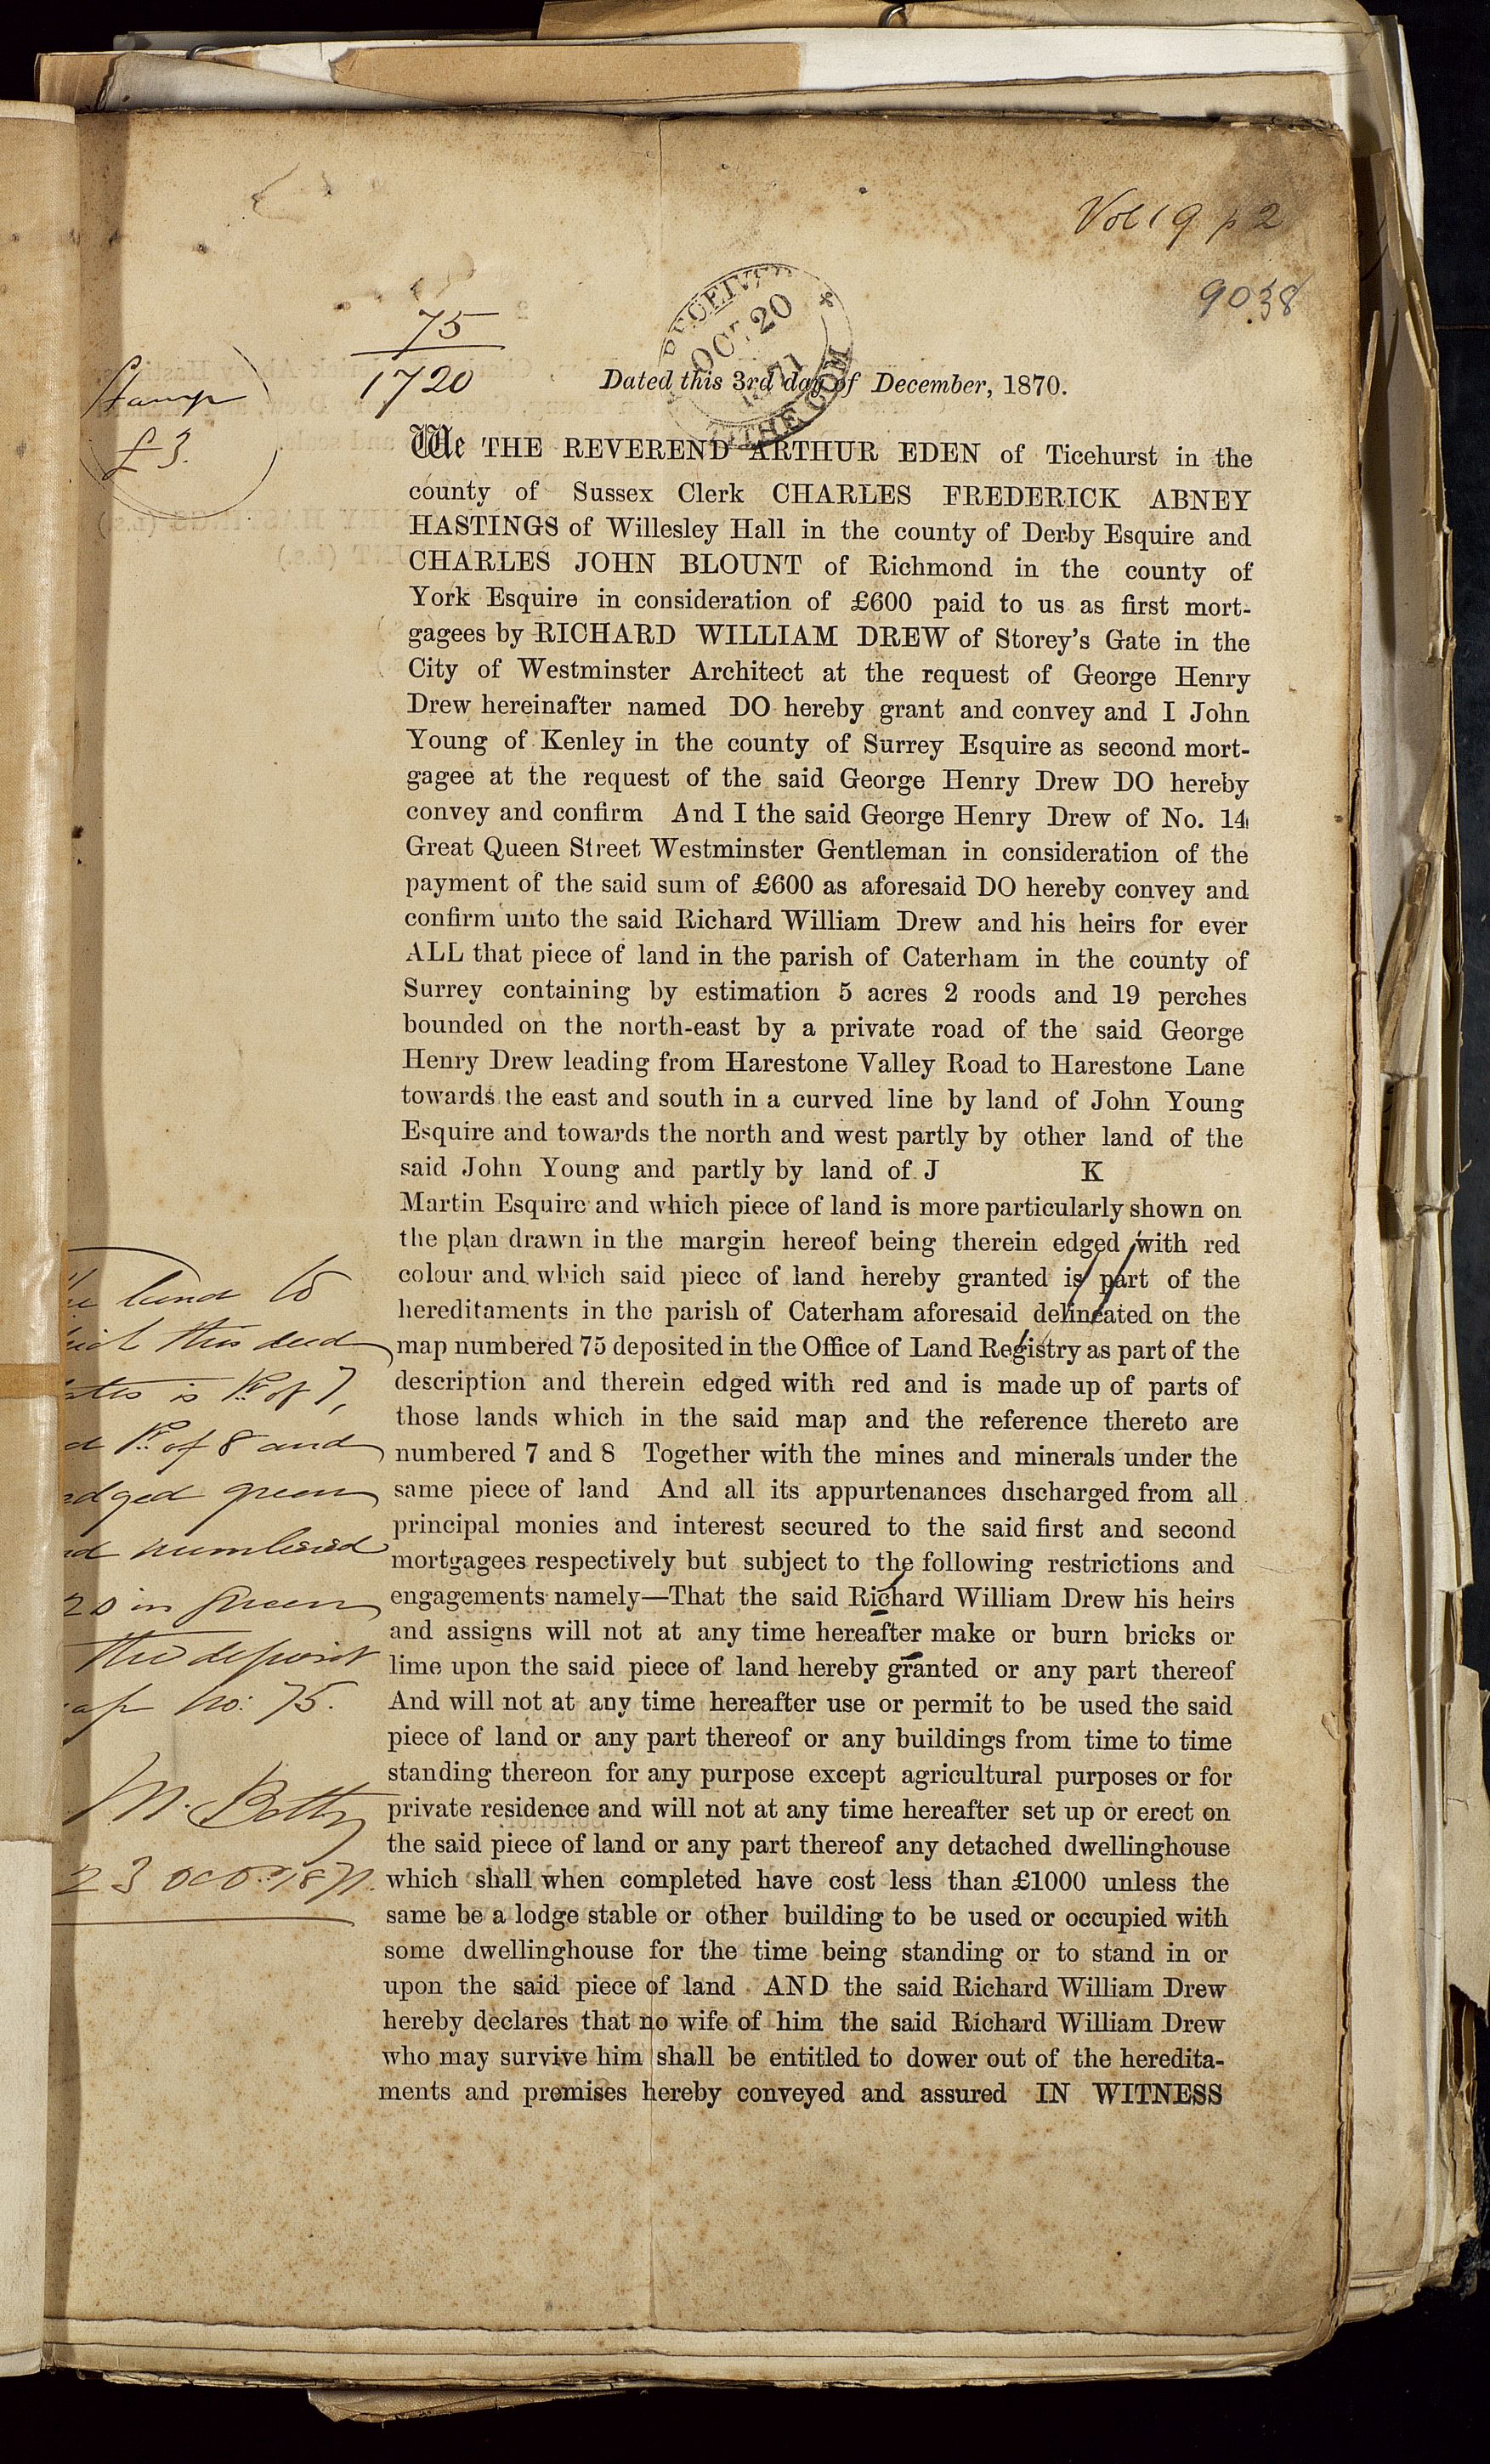 Vol 19 p 2
9038
75
1720
Stamp
£3.
OCT 20
Dated this 3rd day of December, 1870.
We THE REVEREND ARTHUR EDEN of Ticehurst in the
county of Sussex Clerk CHARLES FREDERICK ABNEY
HASTINGS of Willesley Hall in the county of Derby Esquire and
CHARLES JOHN BLOUNT of Richmond in the county of
York Esquire in consideration of £600 paid to us as first mort-
gagees by RICHARD WILLIAM DREW of Storey's Gate in the
City of Westminster Architect at the request of George Henry
Drew hereinafter named DO hereby grant and convey and I John
Young of Kenley in the county of Surrey Esquire as second mort-
gagee at the request of the said George Henry Drew DO hereby
convey and confirm And I the said George Henry Drew of No. 14
Great Queen Street Westminster Gentleman in consideration of the
payment of the said sum of £600 as aforesaid DO hereby convey and
confirm unto the said Richard William Drew and his heirs for ever
ALL that piece of land in the parish of Caterham in the county of
Surrey containing by estimation 5 acres 2 roods and 19 perches
bounded on the north-east by a private road of the said George
Henry Drew leading from Harestone Valley Road to Harestone Lane
towards the east and south in a curved line by land of John Young
Esquire and towards the north and west partly by other land of the
said John Young and partly by land of J K
Martin Esquire and which piece of land is more particularly shown on
the plan drawn in the margin hereof being therein edged with red
colour and which said piece of land hereby granted is part of the
hereditaments in the parish of Caterham aforesaid delineated on the
map numbered 75 deposited in the Office of Land Registry as part of the
description and therein edged with red and is made up of parts of
those lands which in the said map and the reference thereto are
numbered 7 and 8 Together with the mines and minerals under the
same piece of land And all its appurtenances discharged from all
principal monies and interest secured to the said first and second
mortgagees respectively but subject to the following restrictions and
engagements namely—That the said Richard William Drew his heirs
and assigns will not at any time hereafter make or burn bricks or
lime upon the said piece of land hereby granted or any part thereof
And will not at any time hereafter use or permit to be used the said
piece of land or any part thereof or any buildings from time to time
standing thereon for any purpose except agricultural purposes or for
private residence and will not at any time hereafter set up or erect on
the said piece of land or any part thereof any detached dwellinghouse
which shall when completed have cost less than £1000 unless the
same be a lodge stable or other building to be used or occupied with
some dwellinghouse for the time being standing or to stand in or
upon the said piece of land AND the said Richard William Drew
hereby declares that no wife of him the said Richard William Drew
who may survive him shall be entitled to dower out of the heredita-
ments and premises hereby conveyed and assured IN WITNESS
land to
this deed
is Pt. of 7,
Pt. of 8 and
green
numbered
20 in green
the deposit
no: 75.
23 Octr. 1871.